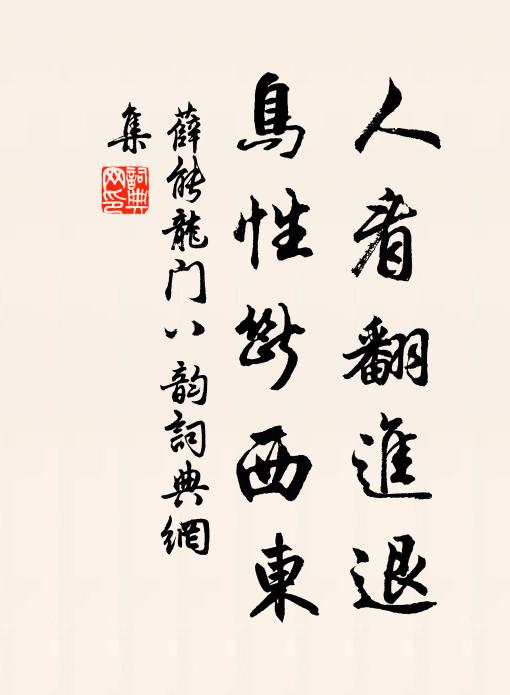 人看翻進退
鳥性斷西東
薛能龍門八韵詞典網
集
詞典
网印